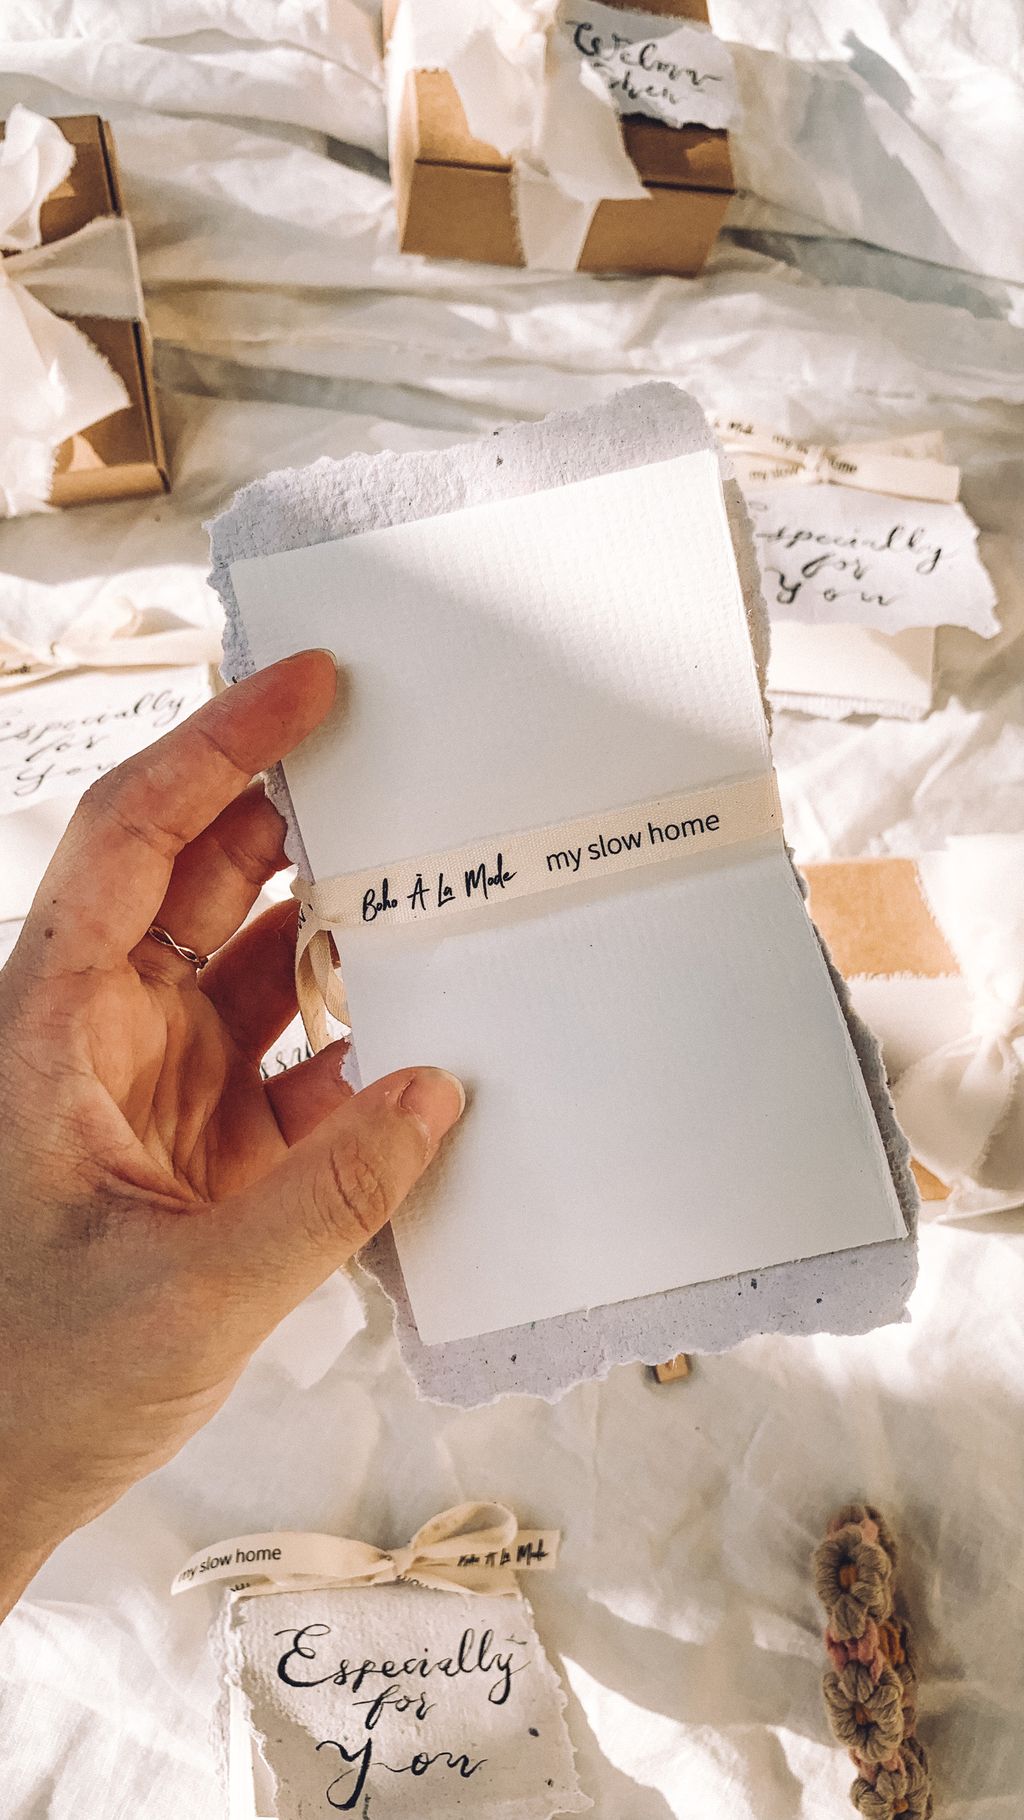 Welma
Cohen
my slow home
Especially
for
You
Especially
for
You
Boho À La Mode my slow home
my slow home Boho À La Mode
Especially
for
You